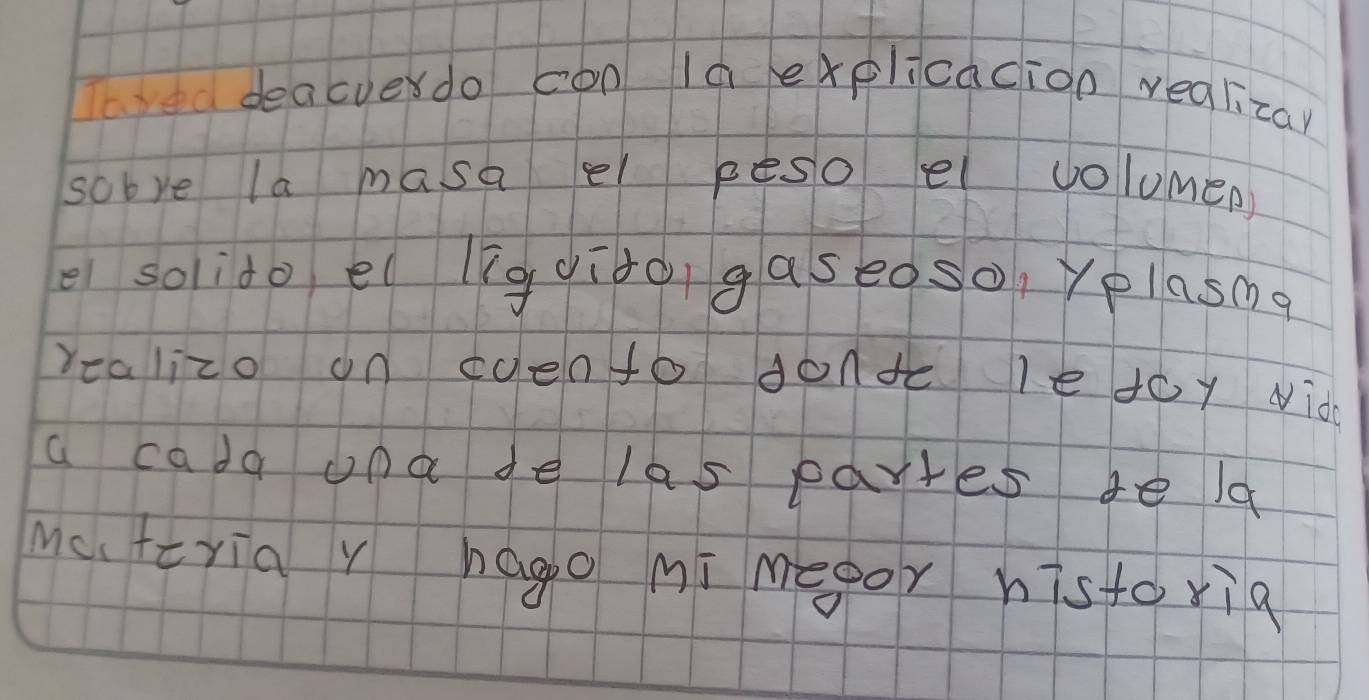 Tared deacuerdo con la explicacion realizar
sobre la masa el peso el volumen,
el solido, el liquido, gaseoso, y plasma
realizo un cuento donde le doy vida
a cada una de las partes de la
materia y hago mi megor historia